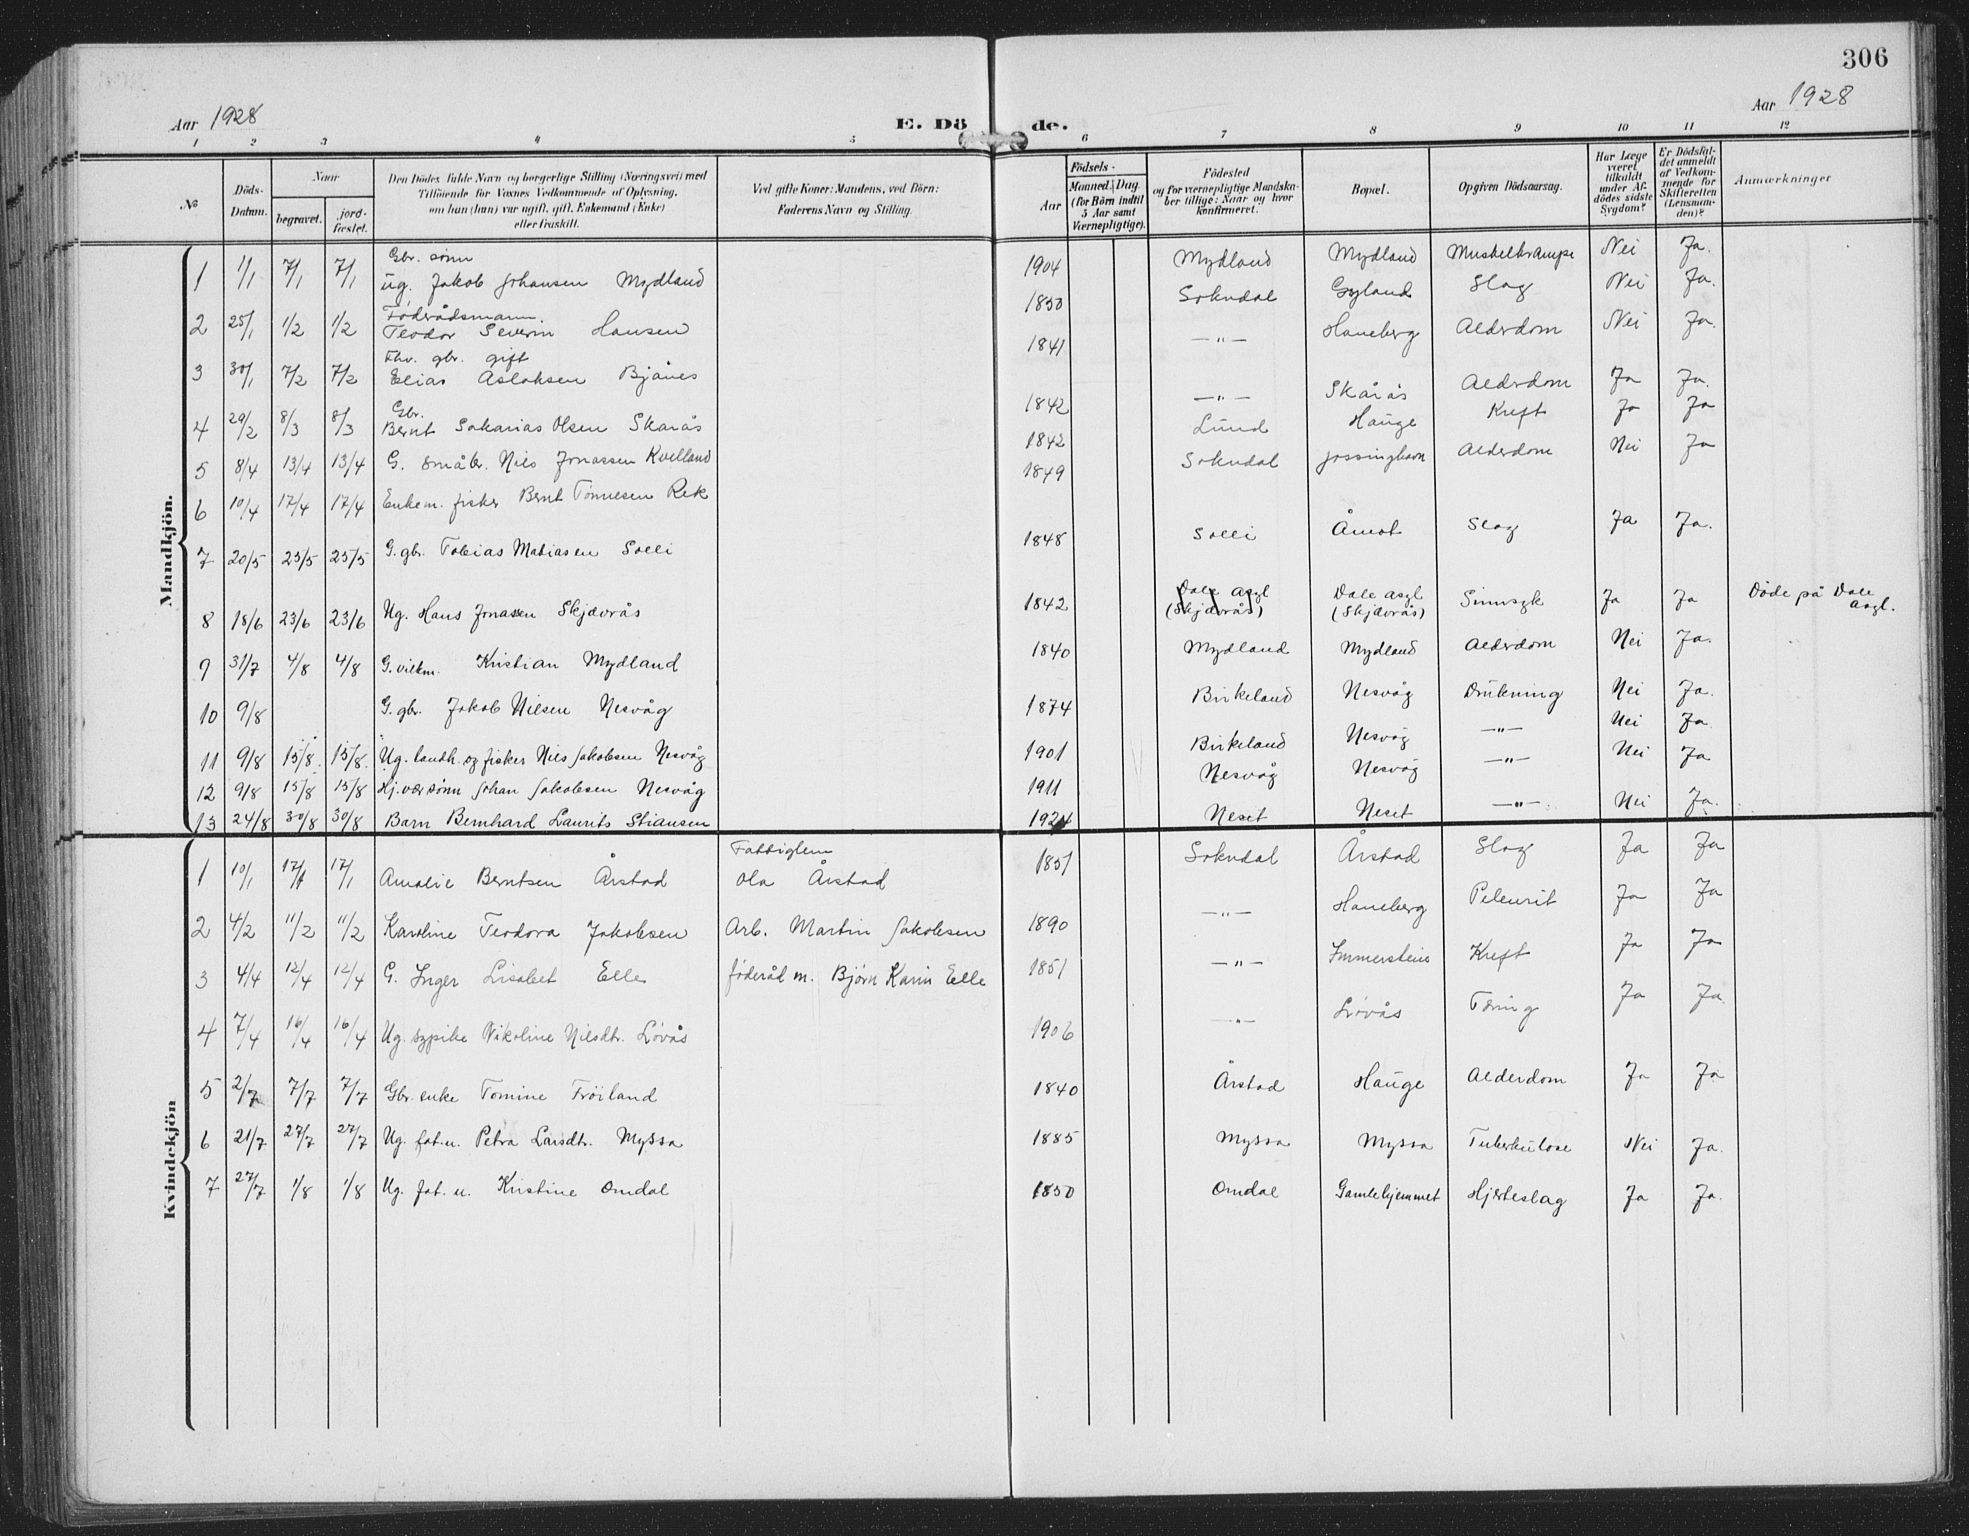 306
Aar 1928
E. Dö de.
Aar 1928
1 2 3 4 5 6 7 8 9 10 11 12
No
Döds-Datum.
Naar
begravet.
jord-fæstet.
Den Dödes fulde Navn og borgerlige Stilling (Næringsvei) med
Tilföiende for Voxnes Vedkommende af Oplysning,
om han (hun) var ugift, gift, Enkemand (Enke)
eller fraskilt.
Ved gifte Koner: Mandens, ved Börn:
Faderens Navn og Stilling.
Födsels-
Aar
Maaned. Dag
(for Börn indtil
5 Aar samt
Værnepligtige).
Födested
og for værnepligtige Mandska-
ber tillige: Naar og hvor
konfirmeret.
Bopæl.
Opgiven Dödsaarsag.
Har Læge
været
tilkaldt
under Af-
dödes sidste
Sygdom?
Er Dödsfal-
det anmeldt
af Vedkom-
mende for
Skifteretten
(Lensman-
den)?
Anmærkninger
Mandkjön.
1 1/1 7/1 7/1 Gbr. sønn
ug. Jakob Johansen Mydland 1904 Mydland Mydland Muskelkrampe Nei Ja.
2 25/1 1/2 1/2 Føderådsmann.
Teodor Severin Hansen 1850 Sokndal Gyland Slag Nei Ja.
3 30/1 7/2 7/2 Fhv. gbr. gift
Elias Aslaksen Bjånes 1841 —"— Haneberg Alderdom Nei Ja.
4 29/2 8/3 8/3 Gbr.
Bernt Sakarias Olsen Skarås 1842 —"— Skårås Alderdom Ja Ja.
5 8/4 13/4 13/4 G. småbr. Nils Jonassen Kvelland 1842 Lund Hauge Kreft Ja Ja
6 10/4 17/4 17/4 Enkem. fisker Bernt Tønnesen Rek 1849 Sokndal Jossinghavn Alderdom Nei Ja
7 20/5 25/5 25/5 G. gbr. Tobias Matiasen Solli 1848 Solli Åmot Slag Ja Ja.
8 18/6 23/6 23/6 Ug. Hans Jonassen Skjævrås 1842 Dale asyl (Skjævrås) Dale asyl (Skjævrås) Sinnsyk Ja Ja Døde på Dale asyl.
9 31/7 4/8 4/8 G. Kristian Mydland 1840 Mydland Mydland Alderdom Nei Ja.
10 9/8 G. gbr. Jakob Nilsen Nesvåg 1874 Birkeland Nesvåg Drukning Nei Ja.
11 9/8 15/8. 15/8. Ug. landh. og fisker Nils Jakobsen Nesvåg 1901 Birkeland Nesvåg —"— Nei Ja.
12 9/8 15/8 15/8 Hj.vær sønn Johan Jakobsen Nesvåg 1911 Nesvåg Nesvåg —"— Nei Ja
13 24/8 30/8 30/8 Barn Bernhard Laurits Stiansen 1924 Neset Neset —"— Nei Ja.
Kvindekjön
1 10/1 17/1 17/1 Amalie Berntsen Årstad Fattiglem
Ola Årstad 1851 Sokndal Årstad Slag Ja Ja
2 4/2 11/2 11/2 Karoline Teodora Jakobsen Arb. Martin Jakobsen 1890 —"— Haneberg Pleurit Ja Ja
3 4/4 12/4 12/4 G. Inger Lisabet Elle føderåd m. Bjørn Karin Eelle 1851 —"— Immerstein Kreft Ja Ja
4 7/4 16/4 16/4 Ug. sypike Nikoline Nilsdtr. Løvås 1906 —"— Løvås Tæring Ja Ja.
5 2/7 7/7 7/7 Gbr. enke Tomine Frøiland 1840 Årstad Hauge Alderdom Ja Ja
6 21/7 27/7 27/7 Ug. fat. u. Petra Larsdtr. Myssa 1885 Myssa Myssa Tuberkulose Nei Ja.
7 27/7 1/8 1/8 Ug. fat. u. Kristine Omdal 1850 Omdal Gamlehjemmet Hjerteslag Ja Ja.